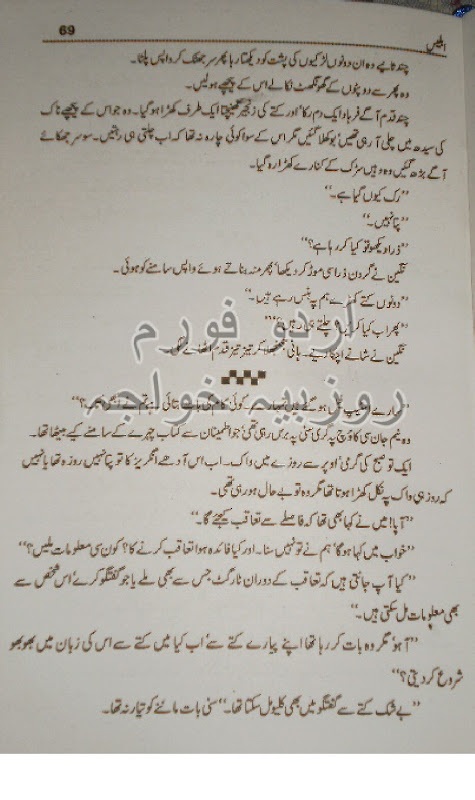 69
ابلیس
چند ثانیے وہ ان دونوں لڑکیوں کی پشت کو دیکھتا رہا پھر سر جھٹک کر واپس پلٹا۔
وہ پھر سے دوپٹوں کے گھونگھٹ نکالے اس کے پیچھے ہولیں۔
چند قدم آگے فرہاد ایک دم رکا' اور کتے کی زنجیر کھینچتا ایک طرف کھڑا ہوگیا۔ وہ جو اس کے پیچھے ناک
کی سیدھ میں چلی آ رہی تھیں' بوکھلا گئیں مگر اس کے سوا کوئی چارہ نہ تھا کہ اب چلتی ہی رہتیں۔ سو سر جھکائے
آگے بڑھ گئیں وہ وہیں سڑک کے کنارے کھڑا رہ گیا۔
"رک کیوں گیا ہے۔"
"پتا نہیں۔"
"ذرا دیکھو تو کیا کر رہا ہے؟"
نگین نے گردن ذرا سی موڑ کر دیکھا' پھر منہ بناتے ہوئے واپس سامنے کو ہوئی۔
"دونوں کتے کھڑے ہم پہ ہنس رہے ہیں۔"
"پھر اب کیا کریں؟ چلتے ہی رہیں؟"
نگین نے شانے اچکا دیے۔ ہانی جھنجھلا کر تیز تیز قدم اٹھانے لگی۔
اردو فورم
روزبیہ خواجہ
وہ نیم جان سی کاؤچ پہ گری سنی پہ برس رہی تھی' جو اطمینان سے کتاب چہرے کے سامنے کیے بیٹھا تھا۔
ایک تو صبح کی گرمی' اوپر سے روزے میں واک۔ اب اس آدھے انگریز کا تو پتا نہیں روزہ تھا یا نہیں
کہ روز ہی واک پہ نکل کھڑا ہوتا تھا مگر وہ تو بے حال ہو رہی تھی۔
"آپا! میں نے کہا بھی تھا کہ فاصلے سے تعاقب کیجئے گا۔"
"خواب میں کہا ہوگا' ہم نے تو نہیں سنا۔ اور کیا فائدہ ہوا تعاقب کرنے کا؟ کون سی معلومات ملیں؟"
"کیا آپ جانتی ہیں کہ تعاقب کے دوران ٹارگٹ جس سے بھی ملے یا جو گفتگو کرے' اس شخص سے
بھی معلومات مل سکتی ہیں۔"
"آہو' مگر وہ بات کر رہا تھا اپنے پیارے کتے سے' اب کیا میں کتے سے اس کی زبان میں بھو بھو
شروع کر دیتی؟"
"بے شک کتے سے گفتگو میں بھی کلیو مل سکتا تھا۔" سنی بات ماننے کو تیار نہ تھا۔